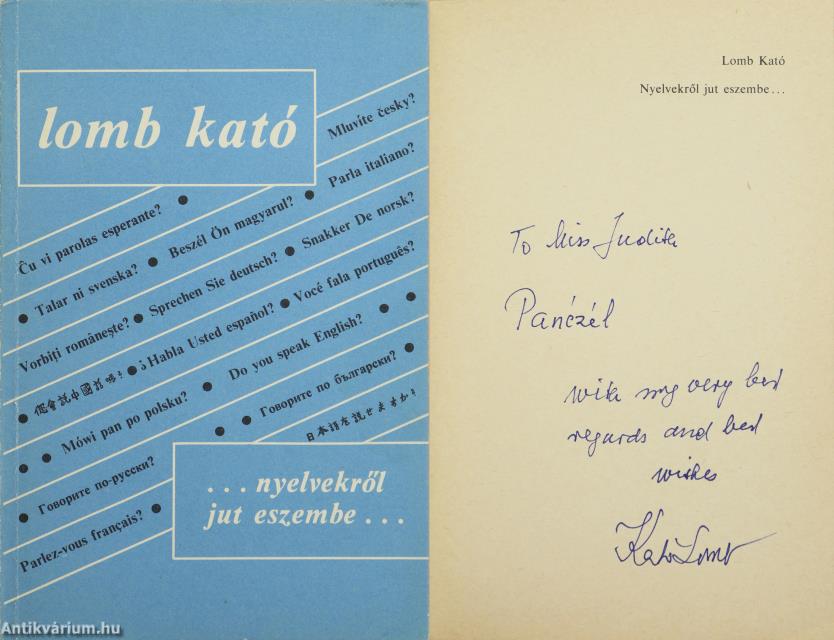 lomb kató
Mluvíte česky?
Parla italiano?
Ĉu vi parolas esperante?
Beszél Ön magyarul?
Snakker De norsk?
Talar ni svenska?
Sprechen Sie deutsch?
Você fala português?
Vorbiţi româneşte?
¿ Habla Usted español?
Do you speak English?
Mówi pan po polsku?
Говорите по български?
Говорите по-русски?
Parlez-vous français?
...nyelvekről
jut eszembe...
Lomb Kató
Nyelvekről jut eszembe...
To Miss Judith
Panczél
with my very best
regards and best
wishes
Kató Lomb
Antikvárium.hu